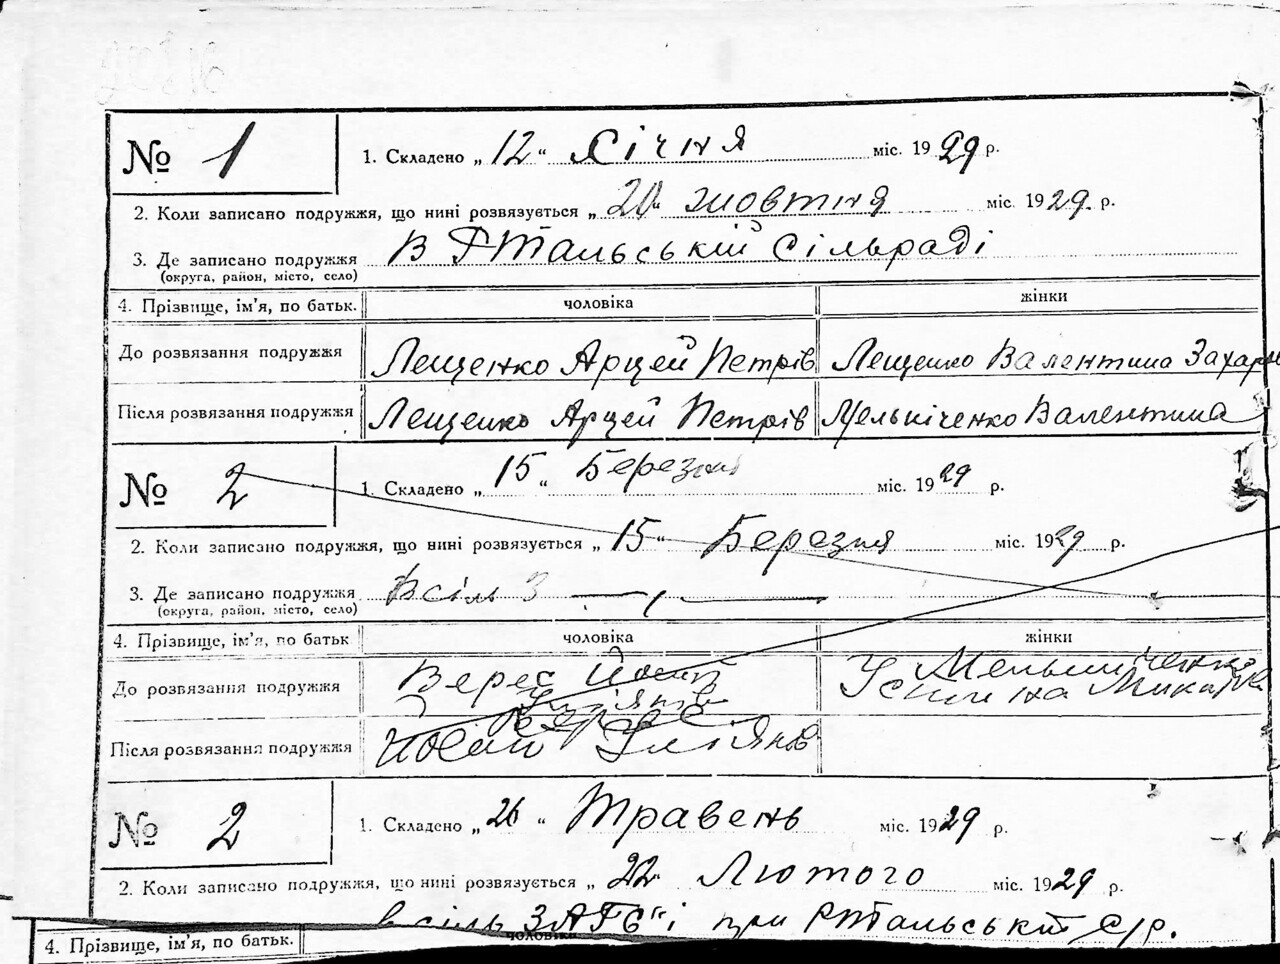 № 1 1. Складено „ 12 “ Січня міс. 1929 р.
2. Коли записано подружжя, що нині розвязується „ 20 “ жовтня міс. 1929 р.
3. Де записано подружжя В Ртальській сільраді
(округа, район, місто, село)
4. Прізвище, ім’я, по батьк. чоловіка жінки
До розвязання подружжя Лещенко Арцей Петрів Лещенко Валентина Захарів
Після розвязання подружжя Лещенко Арцей Петрів Мельніченко Валентина
№ 2 1. Складено „ 15 “ Березня міс. 1929 р.
2. Коли записано подружжя, що нині розвязується „ 15 “ Березня міс. 1929 р.
3. Де записано подружжя В сіль З
(округа, район, місто, село)
4. Прізвище, ім’я, по батьк чоловіка жінки
До розвязання подружжя Верес Мельниченко
Після розвязання подружжя
№ 2 1. Складено „ 26 “ Травень міс. 1929 р.
2. Коли записано подружжя, що нині розвязується „ 22 “ Лютого міс. 1929 р.
в сіль ЗАГС“і при Ртальській с/р.
4. Прізвище, ім’я, по батьк. чоловіка